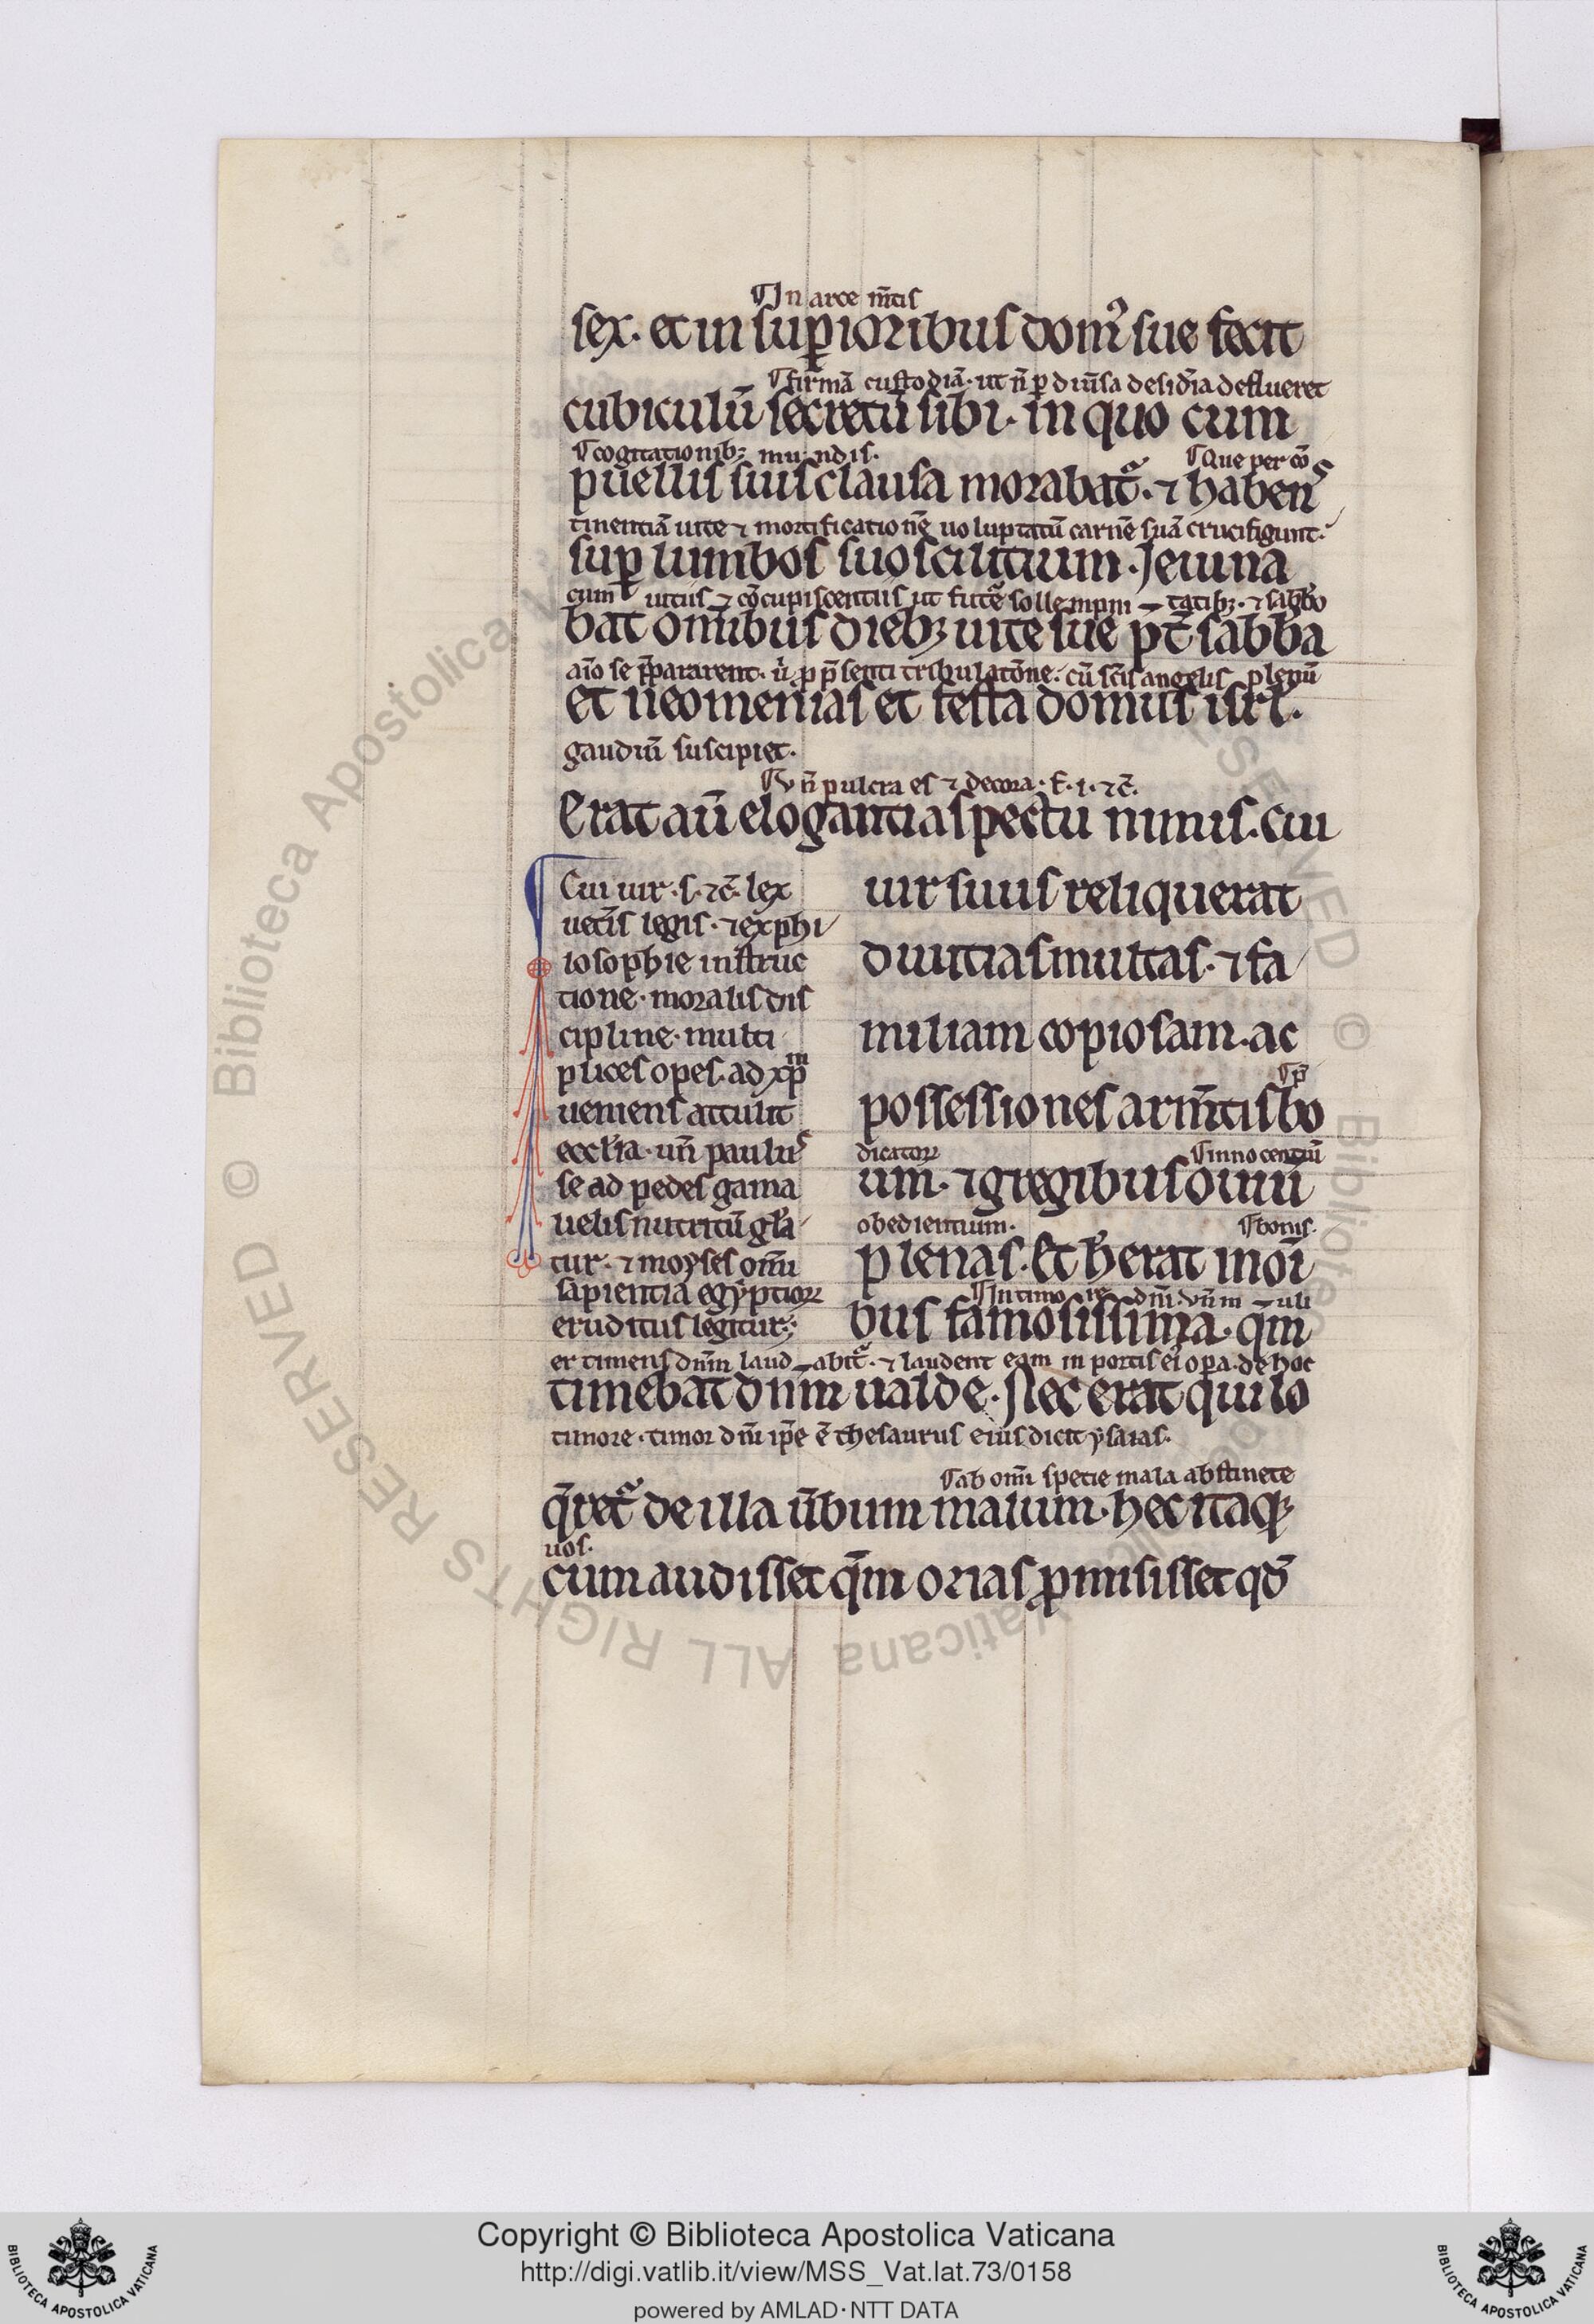 ¶In arce m̄tis
sex. et in sup̱ioribus domꝰ sue fecit
¶firmā custodiā. ut n̄ ꝑ diũsa desid̓ia deflueret
cubiculū secretū sibi. in quo cum
¶cogitationibꝫ mundis. ¶Que per cō
puellis suis clausa morabat᷑. ⁊ habens
tinentiā uite ⁊ mortificationē uoluptatū carnē suā crucifigunt.
suꝑ lumbos suos cilitium. Jeiuna
cum uitiis ⁊ cōcupiscentiis ut future sollempnitatibꝫ. ⁊ sabb̓o
bat omībus diebꝫ uite sue p̄t sabb̓a
aīo se p̄pararent. ꝓ p̄senti tribulatōne. cū scīs angelis plenū
et neomenias et festa domus isrl̓.
gaudiū suscipiet.
¶Vn̄ pulcra es ⁊ decora. f̄. i. ⁊c̄.
Erat aū eloganti aspectu nimis. cui
¶Cui uir. s. ⁊c̄. lex
uet̓is legis. ⁊ ex phi
losophie instruc
tione. moralis dis
cipline. multi
plices opes. ad xp̄m
ueniens attulit
eccl̓ia. un̄ paulus
se ad pedes gama
lielis nutritū gl̓a
tur. ⁊ moyses omī
sapientia egyptioꝝ
eruditus legitur.
uir suus reliquerat
diuitias multas. ⁊ fa
miliam copiosam. ac
¶p̄
possessiones arm̄tis bo
dicatoꝝ ¶innocentiū
um. ⁊ gregibus ouiū
obedientium. ¶bonis.
plenas. Et h̓ erat in oī
¶In timore dn̄i. un̄ muli
bus famosissima. qm̄
er timens dn̄m laudabit᷑. ⁊ laudent eam in portis eiꝰ opa. de hoc
timebat dn̄m ualde. Nec erat qui lo
timore. timor dn̄i ip̄e ē thesaurus eius dicit ysaias.
¶ab omī specie mala abstinete
q̄ret᷑ de illa ūbum malum. hec itaqꝫ
uos.
cum audisset qm̄ ozias ꝓmisisset qd̄
Copyright © Biblioteca Apostolica Vaticana
http://digi.vatlib.it/view/MSS_Vat.lat.73/0158
powered by AMLAD·NTT DATA
BIBLIOTECA APOSTOLICA VATICANA
BIBLIOTECA APOSTOLICA VATICANA
© Biblioteca Apostolica Vaticana ALL RIGHTS RESERVED